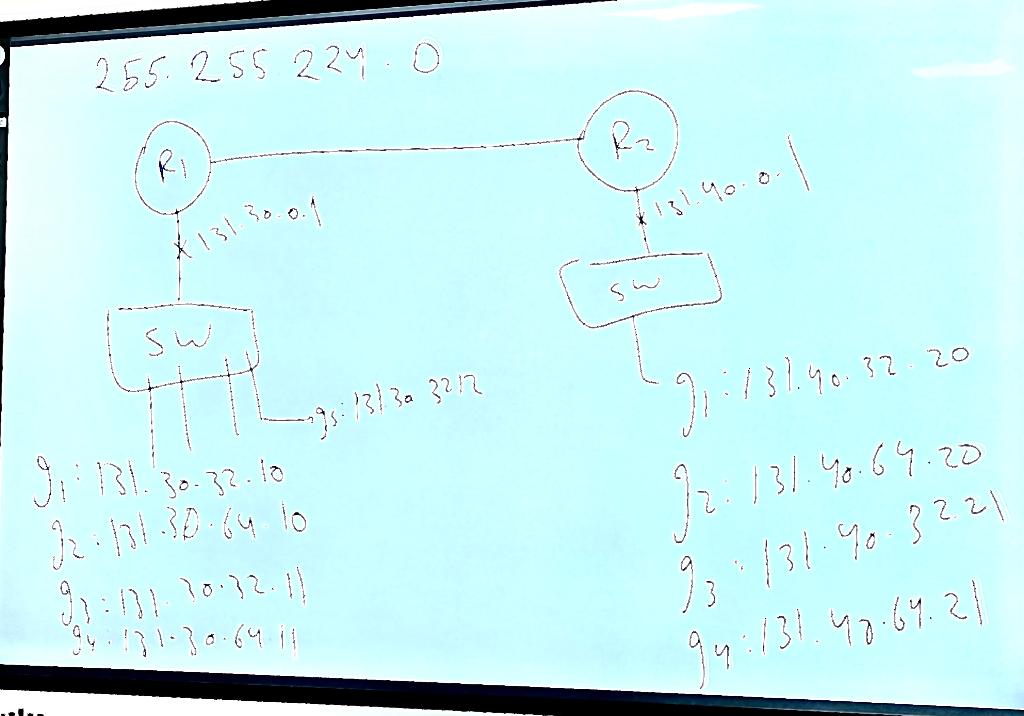 255.255.224.0
R1
R2
131.30.0.1
131.40.0.1
SW
SW
g5:131.30.32.12
g1:131.30.32.10
g2:131.30.64.10
g3:131.30.32.11
g4:131.30.64.11
g1:131.40.32.20
g2:131.40.64.20
g3:131.40.32.21
g4:131.40.64.21